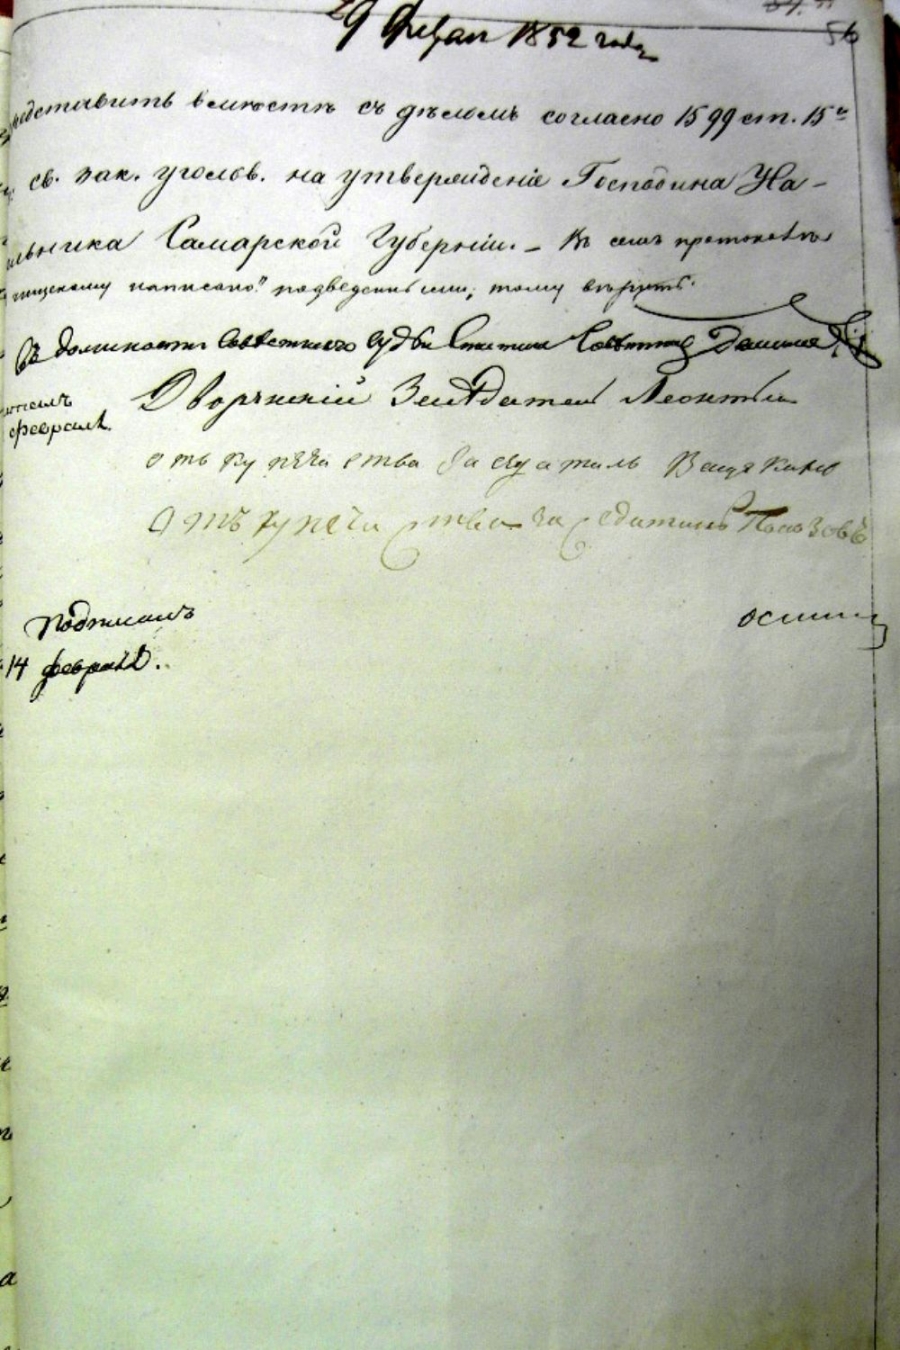 9 Феврал 1852 года
56
редставить вместѣ съ дѣломъ согласно 1599 ст. 15
св. зак. уголов. на утвержденіе Господина На-
льника Самарской Губерніи. – Въ семъ протоколѣ
написано подведенными, тому вѣрить.
Въ должности Совѣстнаго Судьи Статскій Совѣтникъ
Дворянскій Засѣдатель Леонтьи
февраля.
отъ купечества Засѣдатель
Отъ купечества засѣдатель
Подписалъ
14 февраля.